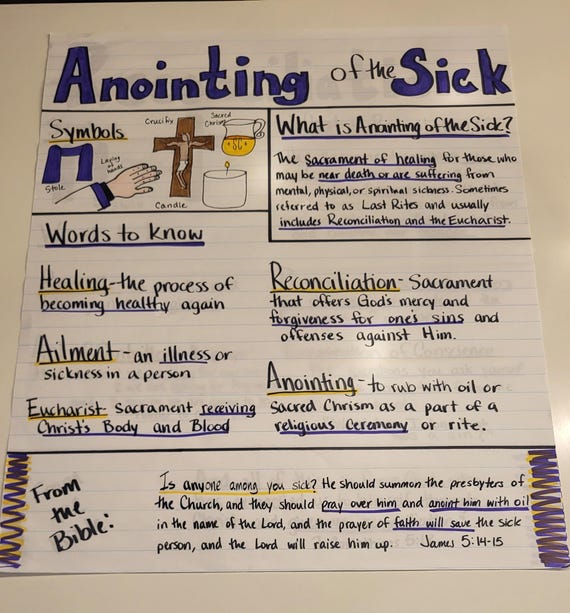 Anointing of the Sick
Symbols
Stole
Laying
of
hands
Crucifix
Sacred
Chrism
SC
Candle
What is Anointing of the Sick?
The Sacrament of healing for those who
may be near death or are suffering from
mental, physical, or spiritual sickness. Sometimes
referred to as Last Rites and usually
includes Reconciliation and the Eucharist.
Words to know
Healing - the process of
becoming healthy again
Ailment - an illness or
sickness in a person
Eucharist- Sacrament receiving
Christ's Body and Blood
Reconciliation - Sacrament
that offers God's mercy and
forgiveness for one's sins and
offenses against Him.
Anointing - to rub with oil or
Sacred Chrism as a part of a
religious ceremony or rite.
From
the
Bible:
Is anyone among you sick? He should summon the presbyters of
the Church, and they should pray over him and anoint him with oil
in the name of the Lord, and the prayer of faith will save the sick
person, and the Lord will raise him up. James 5:14-15